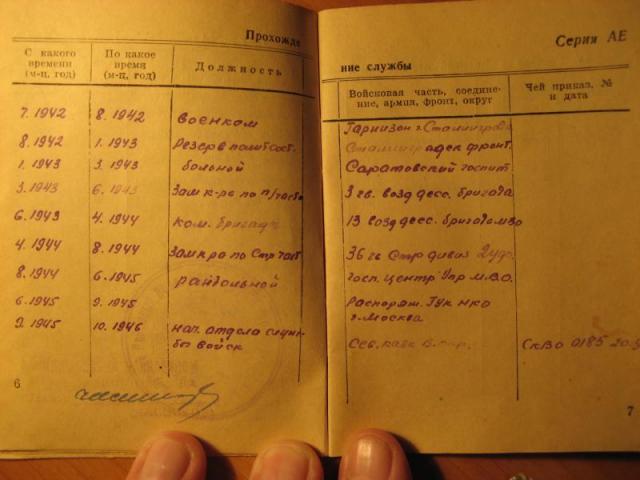 Прохожде
С какого времени (м-ц, год)
По какое время (м-ц, год)
Должность
7.1942 8.1942 военком
8.1942 1.1943 Резерв полит.сост.
1.1943 3.1943 больной
3.1943 6.1943 Зам к-ра по п/части
6.1943 4.1944 ком. бригады
4.1944 8.1944 Зам к-ра по Стр
8.1944 6.1945
6.1945 9.1945
9.1945 10.1946 нач. отдела служ-
бы войск
6
Серия АЕ
ние службы
Войсковая часть, соедине-
ние, армия, фронт, округ
Чей приказ. №
и дата
Гарнизон г. Сталинграда
Сталинградск фронт.
Саратовский госпит.
3 гв. возд дес. бригада
13 возд дес. бригада мво
36 гв Стр дивиз
Госп. центр Упр М.В.О.
Распоряж. ГУК НКО
г. Москва
Сев. кавк В. окр. СКВО 0185
7